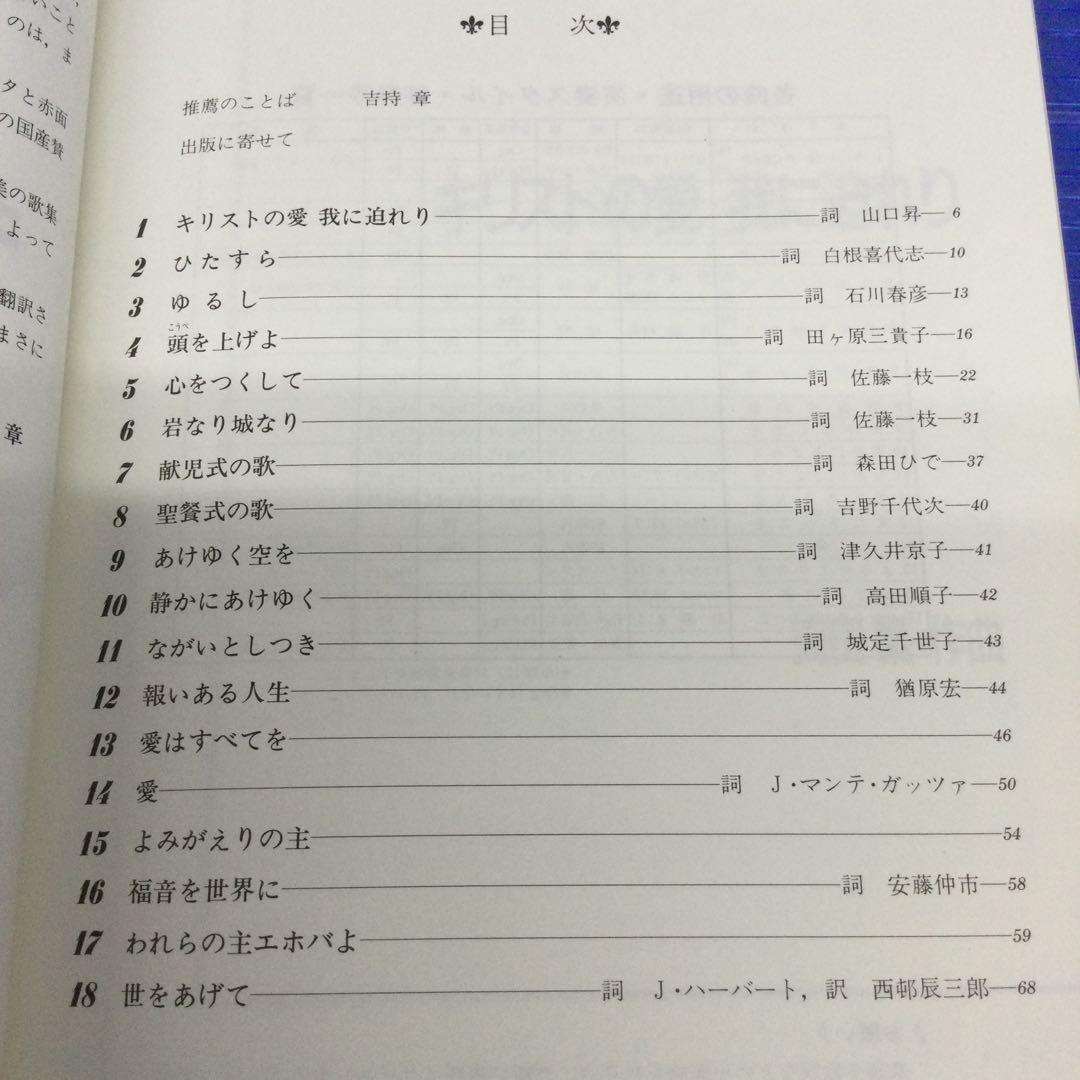 いこと
のは，ま
タと赤面
の国産賛
美の歌集
よって
翻訳さ
まさに
章
目 次
推薦のことば 吉持 章
出版に寄せて
1 キリストの愛 我に迫れり 詞 山口昇 6
2 ひたすら 詞 白根喜代志 10
3 ゆるし 詞 石川春彦 13
こうべ
4 頭を上げよ 詞 田ヶ原三貴子 16
5 心をつくして 詞 佐藤一枝 22
6 岩なり城なり 詞 佐藤一枝 31
7 献児式の歌 詞 森田ひで 37
8 聖餐式の歌 詞 吉野千代次 40
9 あけゆく空を 詞 津久井京子 41
10 静かにあけゆく 詞 高田順子 42
11 ながいとしつき 詞 城定千世子 43
12 報いある人生 詞 猶原宏 44
13 愛はすべてを 46
14 愛 詞 J・マンテ・ガッツァ 50
15 よみがえりの主 54
16 福音を世界に 詞 安藤仲市 58
17 われらの主エホバよ 59
18 世をあげて 詞 J・ハーバート，訳 西邨辰三郎 68